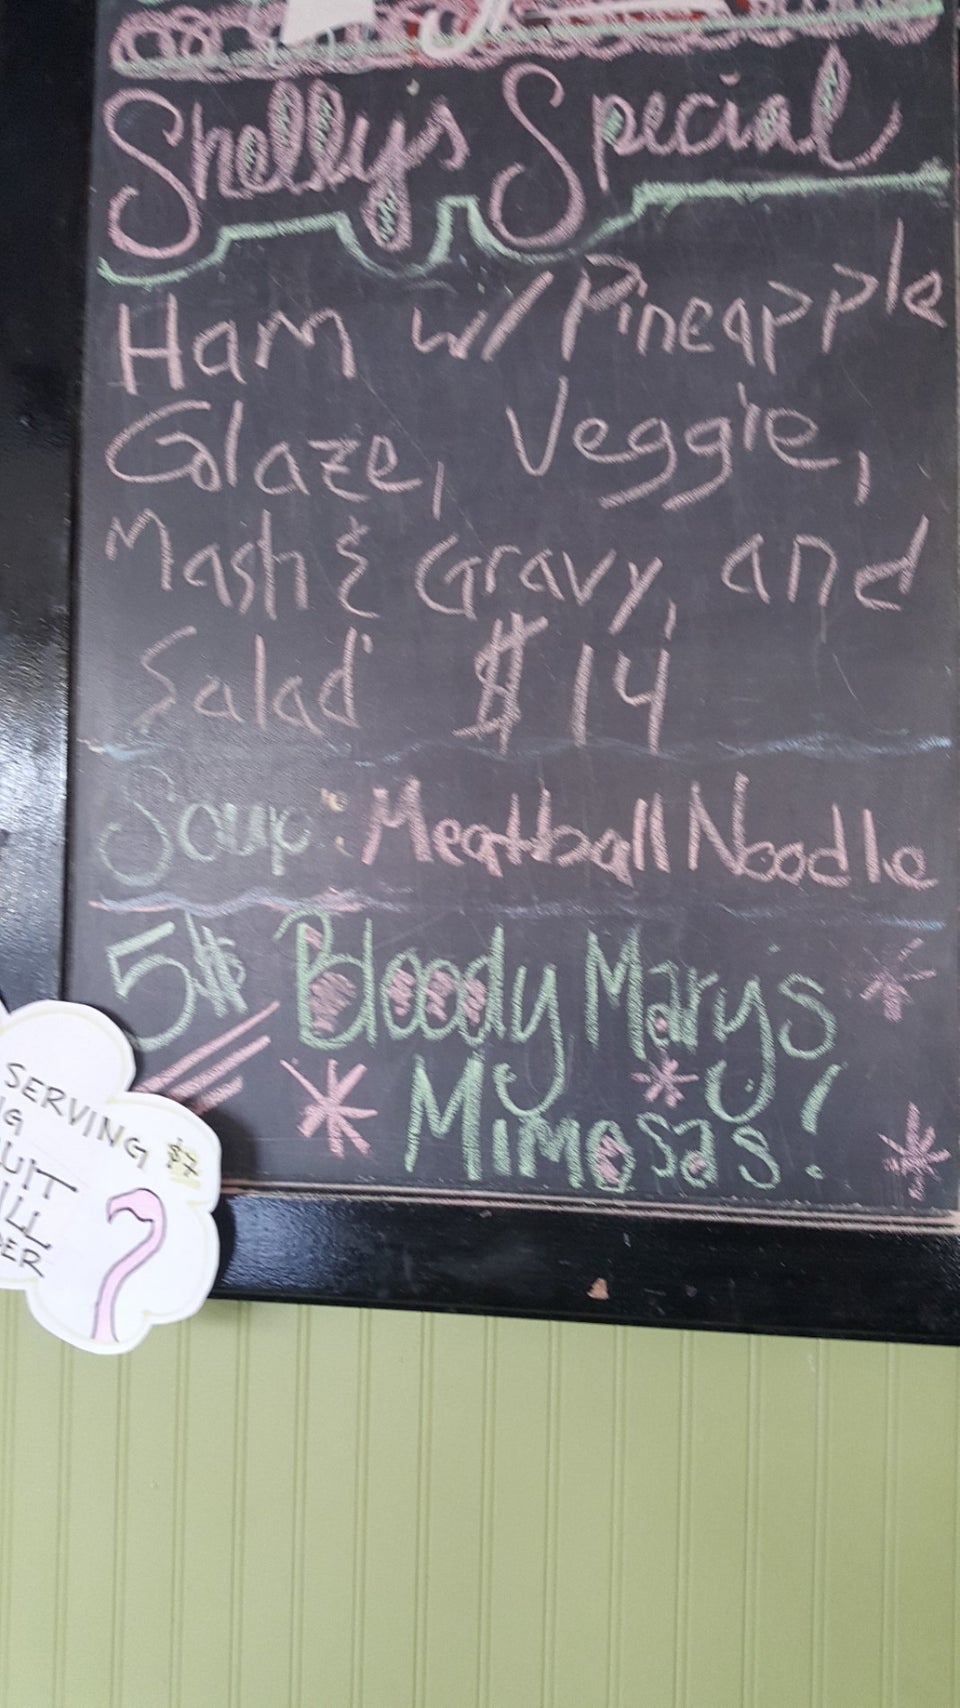 Shelly's Special
Ham w/ Pineapple
Glaze, Veggie,
Mash & Gravy, and
Salad $14
Soup: Meatball Noodle
5$ Bloody Marys
Mimosas!
SERVING
$7